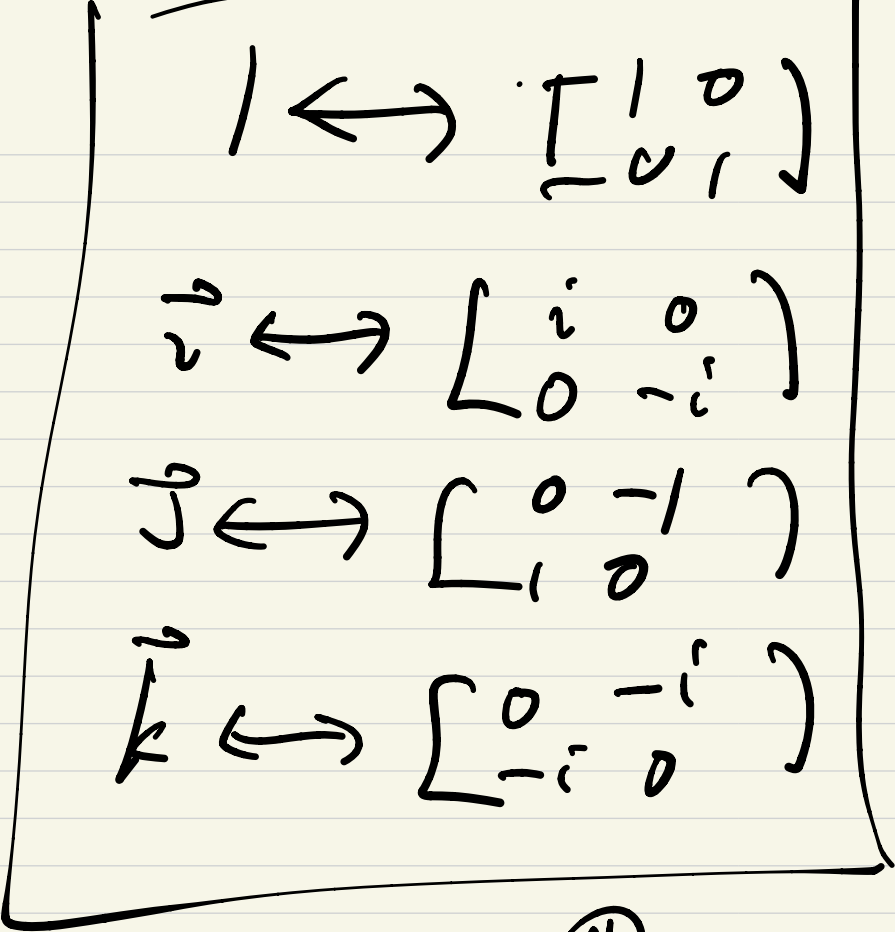 1 ↔ [ 1 0
0 1 ]
i⃗ ↔ [ i 0
0 -i ]
j⃗ ↔ [ 0 -1
1 0 ]
k⃗ ↔ [ 0 -i
-i 0 ]